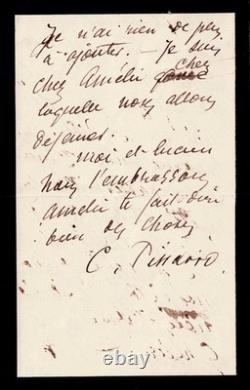 Je n'ai rien de plus
à ajouter. — Je suis
chez Amélie chez
laquelle nous allons
déjeuner.
moi et Lucien
nous t'embrassons
Amélie te fait dire
bien des choses
C. Pissarro.